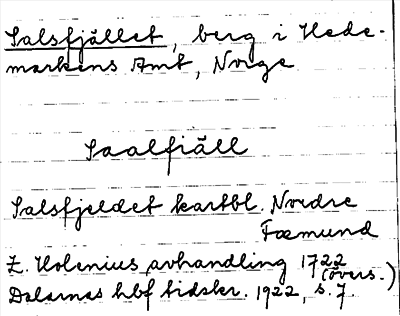 Salsfjället, berg i Hede-
markens Amt, Norge
Saalfiäll
Salsfjeldet kartbl. Nordre
Fæmund
Z. Holenius, avhandling 1722
(övers.)
Dalarnas hbf tidskr. 1922, s. 7.